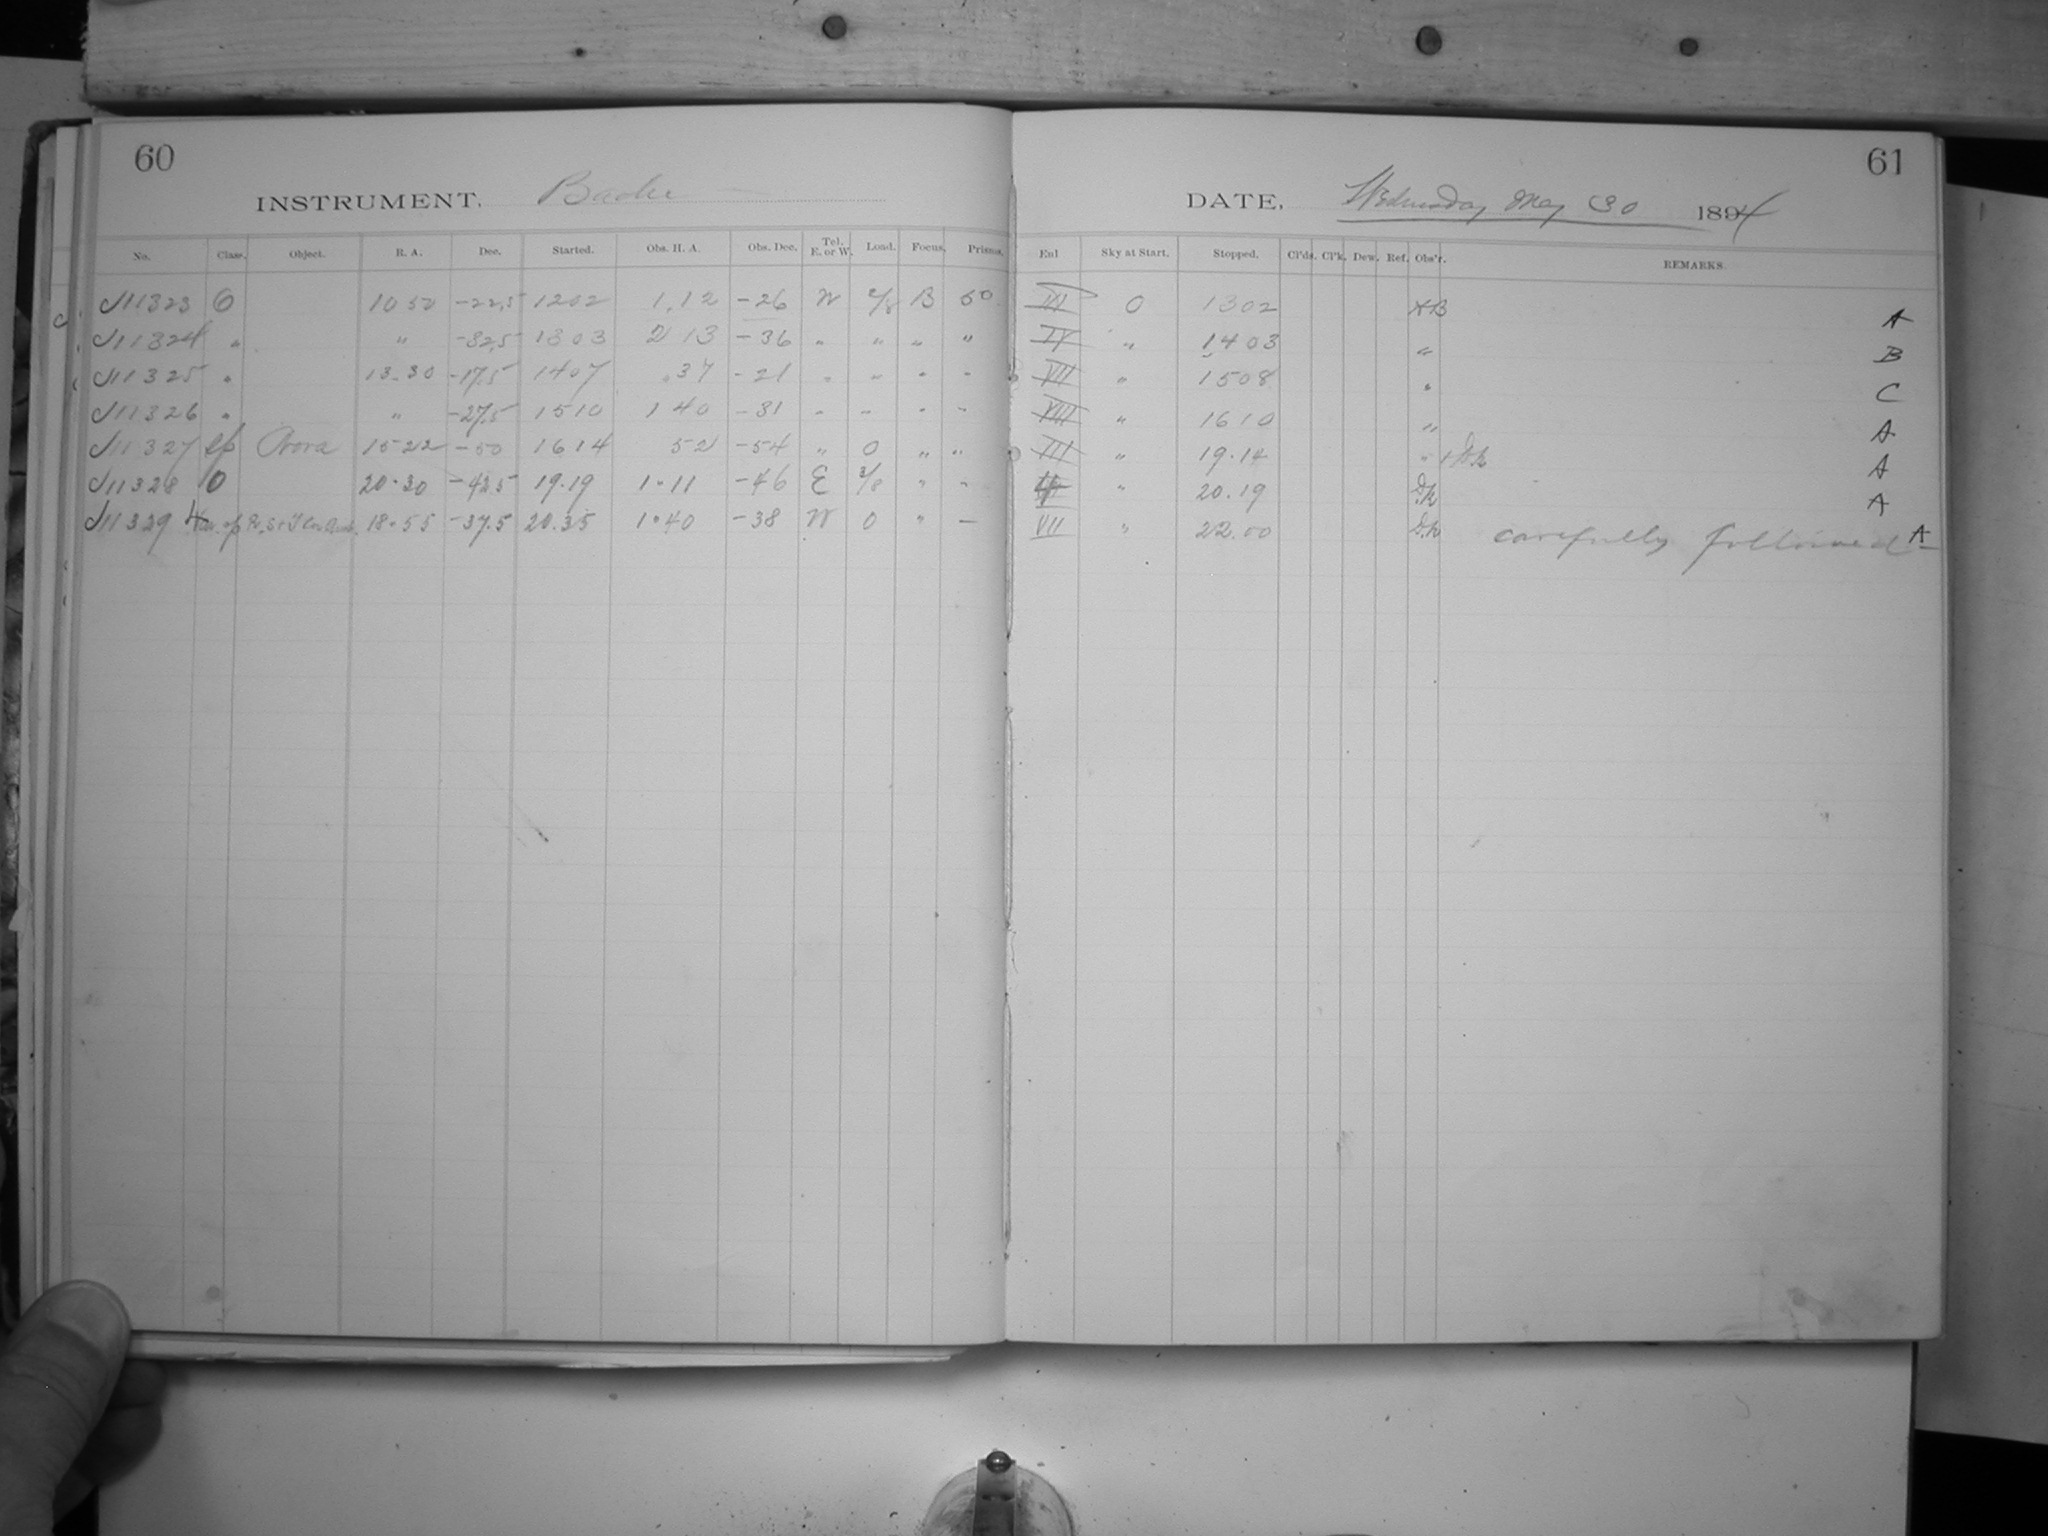 60
INSTRUMENT, Bache
No. Class. Object. R. A. Dec. Started. Obs. H. A. Obs. Dec. Tel. E. or W. Load. Focus. Prisms.
11323 O 10 52 -22.5 1202 1.12 -26 W B 50
11324 " " -32.5 1303 2 13 -36 " " " "
11325 " 13-30 -17.5 1407 .37 -21 " " " "
11326 " " -27.5 1510 1 40 -31 " " " "
11327 sp Nova 15-22 -50 1614 52 -54 " 0 " "
11328 O 20.30 -42.5 19.19 1.11 -46 E 3/8 " "
11329 18.55 -37.5 20.35 1.40 -38 W 0 " —
61
DATE, Wednesday May 30 1894
Enl Sky at Start. Stopped. Cl'ds. Cl'k. Dew. Ref. Obs'r. REMARKS.
III 0 1302 A
IV " 1403 " B
VII " 1508 " C
VIII " 1610 " A
III " 19.14 " A
" 20.19 A
VII " 22.00 carefully followed A